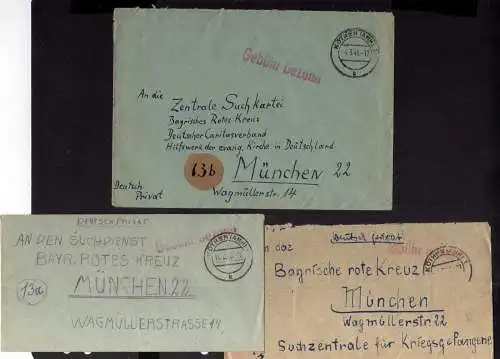 Gebühr bezahlt
KÖTHEN (ANH)
An die
Zentrale Suchkartei
Bayrisches Rotes Kreuz
Deutscher Caritasverband
Hilfswerk der evang. Kirche in Deutschland
13b
München 22
Wagmüllerstr. 14
Deutsch
Privat
Deutsch Privat
Gebühr bezahlt
KÖTHEN (ANH)
AN DEN SUCHDIENST
BAYR. ROTES KREUZ
MÜNCHEN 22
13a
WAGMÜLLERSTRASSE 14
Deutsch privat
an das
Bayrische rote Kreuz
München
Wagmüllerstr. 14
Suchzentrale für Kriegsgefangene